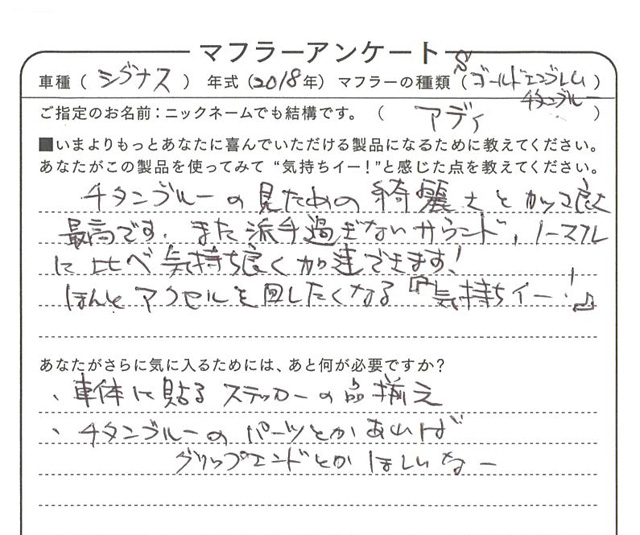 マフラーアンケート
車種（シグナス）年式（2018年）マフラーの種類（ゴールドエンブレム
チタンブルー）
ご指定のお名前：ニックネームでも結構です。（アディ）
■いまよりもっとあなたに喜んでいただける製品になるために教えてください。
あなたがこの製品を使ってみて“気持ちイー！”と感じた点を教えてください。
チタンブルーの見ための綺麗さとカッコ良さ
最高です。また派手過ぎないサウンド、ノーマル
に比べ気持ち良く加速できます！
ほんとアクセルを回したくなる『気持ちイー！』
あなたがさらに気に入るためには、あと何が必要ですか？
、車体に貼るステッカーの品揃え
、チタンブルーのパーツとかあれば
グリップエンドとかほしいなー